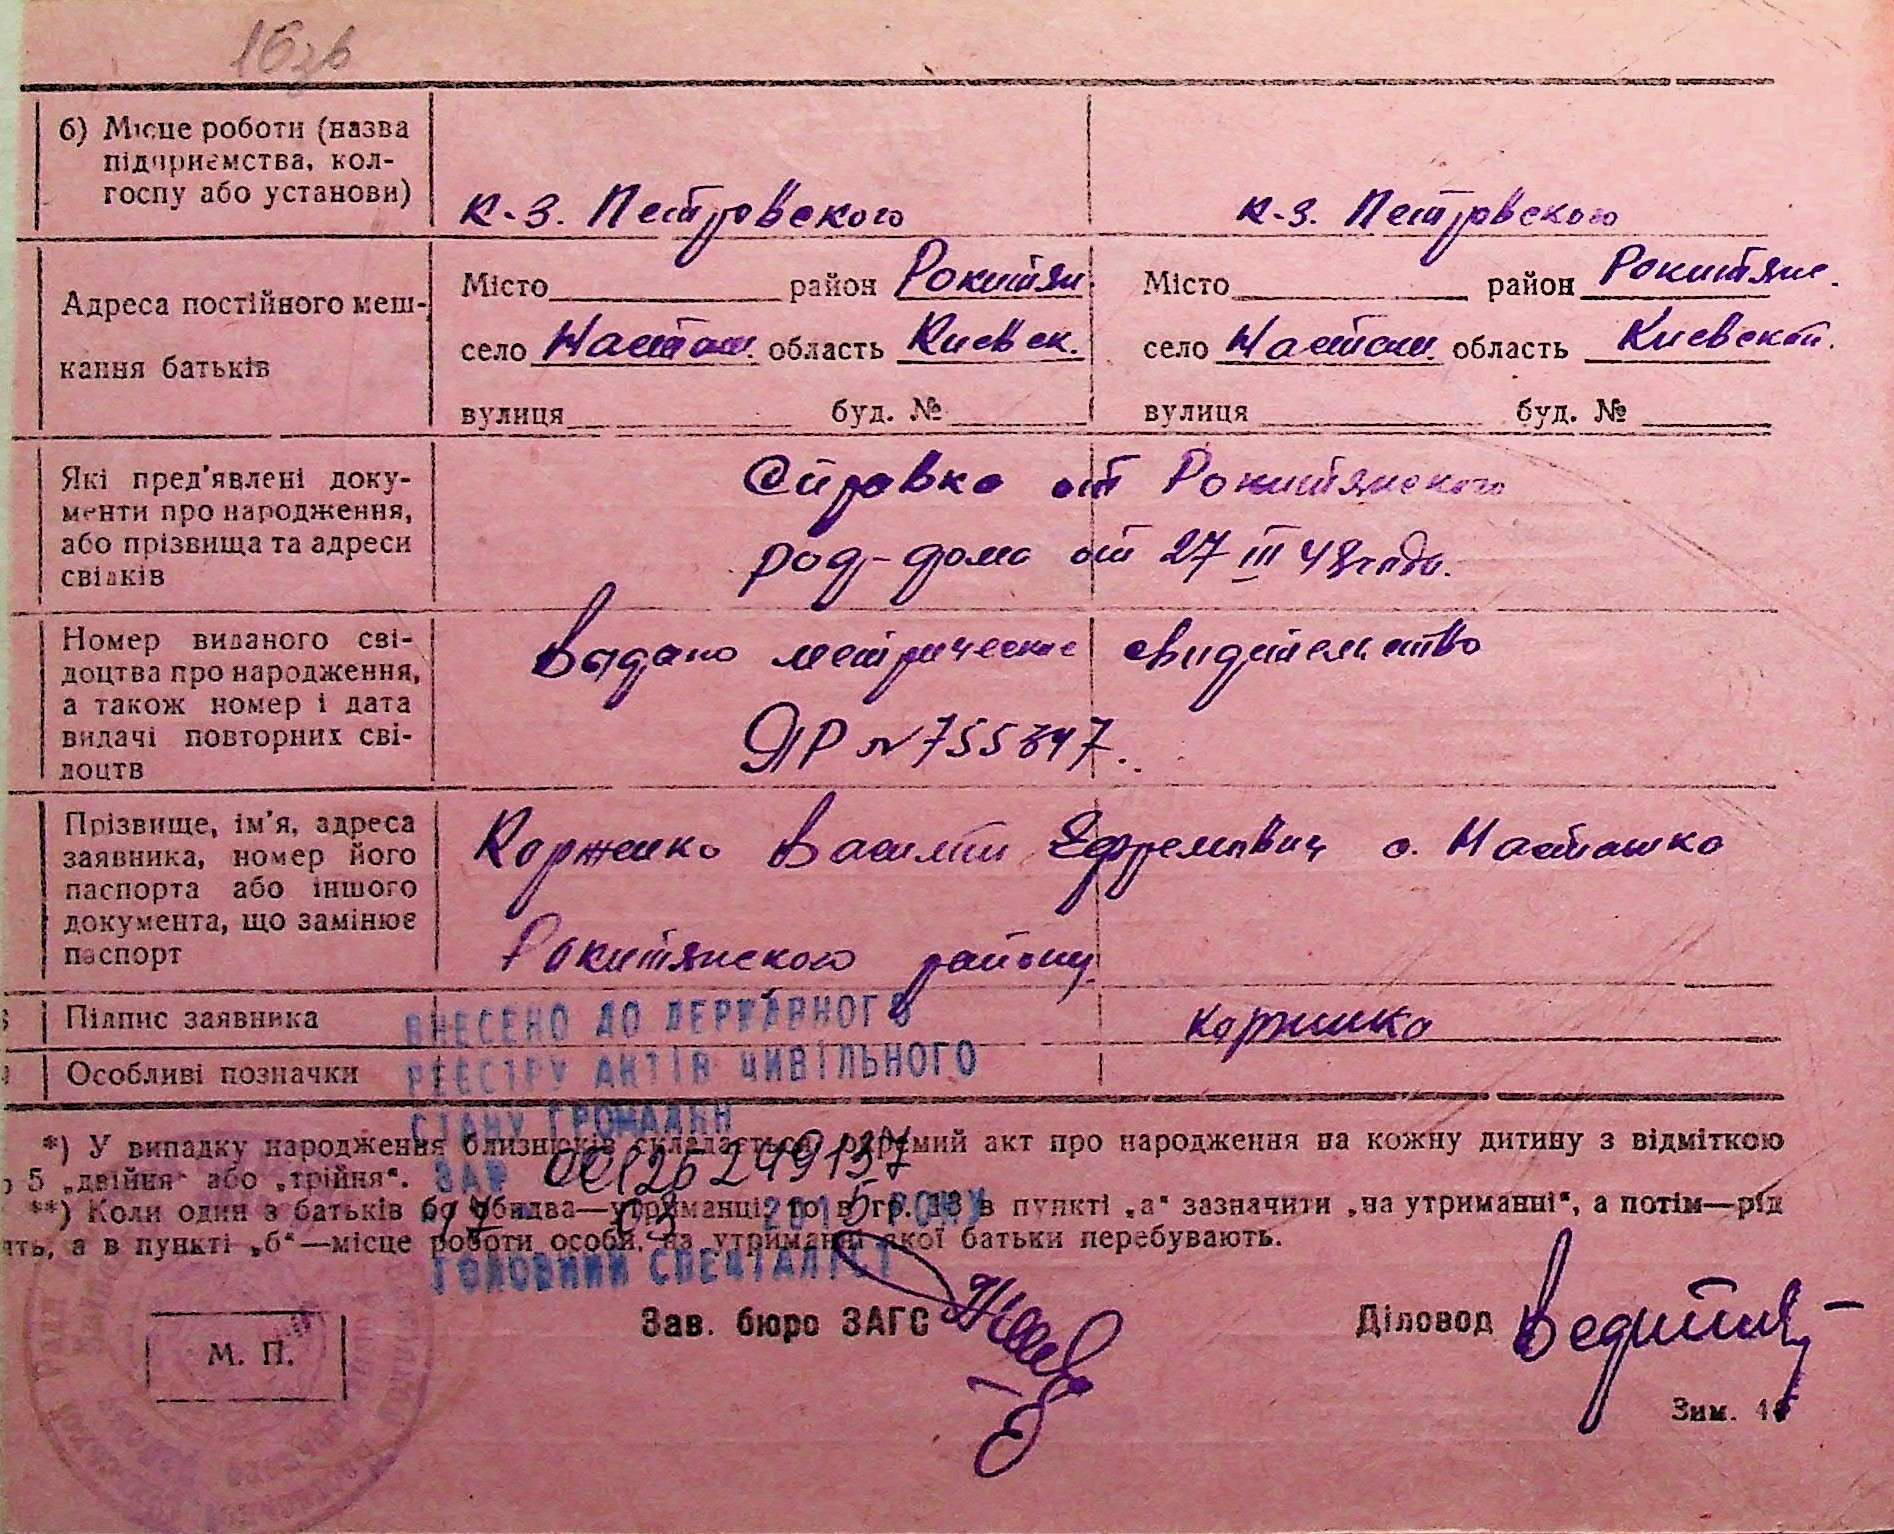 16зв
б) Місце роботи (назва
підприємства, кол-
госпу або установи)
к-з. Петровского к-з. Петровского
Адреса постійного меш-
кання батьків
Місто район Рокитян. Місто район Рокитянс.
село Насташ. область Киевск. село Насташ. область Киевской.
вулиця буд. № вулиця буд. №
Які пред'явлені доку-
менти про народження,
або прізвища та адреси
свідків
Справка от Рокитянского
род-дома от 27 III 48 года.
Номер виданого сві-
доцтва про народження,
а також номер і дата
видачі повторних сві-
доцтв
Видано метрическое свидетельство
ЯР № 755847.
Прізвище, ім'я, адреса
заявника, номер його
паспорта або іншого
документа, що замінює
паспорт
Корженко Василий Ефремович с. Насташка
Рокитянского району
Підпис заявника Корженко
Особливі позначки
ВНЕСЕНО ДО ДЕРЖАВНОГО
РЕЄСТРУ АКТІВ ЦИВІЛЬНОГО
СТАНУ ГРОМАДЯН
*) У випадку народження близнюків складається окремий акт про народження на кожну дитину з відміткою
5 „двійня" або „трійня".
00126249137
**) Коли один з батьків бо обидва—утриманці, то в гр. 13 в пункті „а" зазначити „на утриманні", а потім—рід
17 03 2015 РОКУ
а в пункті „б"—місце роботи особи, на утриманні якої батьки перебувають.
ГОЛОВНИЙ СПЕЦІАЛІСТ
Зав. бюро ЗАГС Діловод
М. П.
Зим.